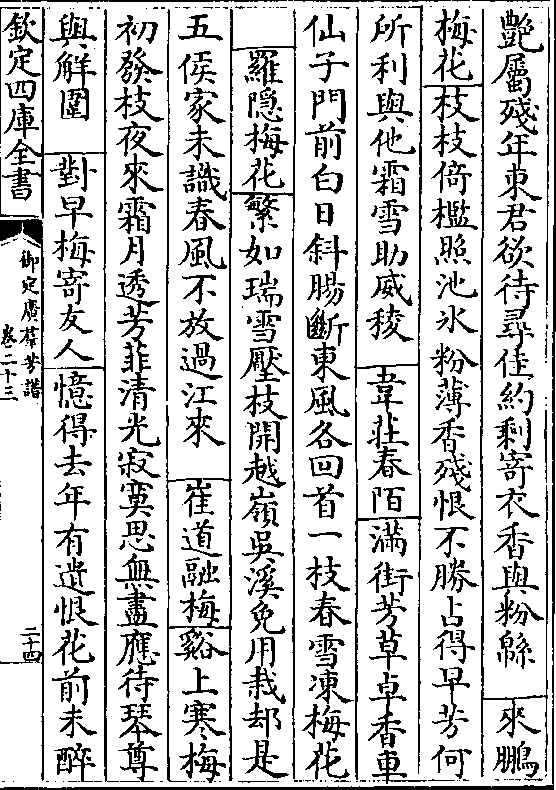 艷屬殘年東君欲待尋佳約剩寄衣香與粉緜　來鵬
梅花　枝枝倚檻照池氷粉薄香殘恨不勝占得早芳何
所利與他霜雪助威稜　韋莊春陌　滿街芳草卓香車
仙子門前白日斜腸斷東風各回首一枝春雪凍梅花
羅隱梅花　繁如瑞雪壓枝開越嶺吳溪免用栽却是
五侯家未識春風不放過江來　崔道融梅　谿上寒梅
初發枝夜來霜月透芳菲清光寂寞思無盡應待琴尊
與解圍　對早梅寄友人　憶得去年有遺恨花前未醉
欽定四庫全書
御定廣羣芳譜
卷二十三
二十四